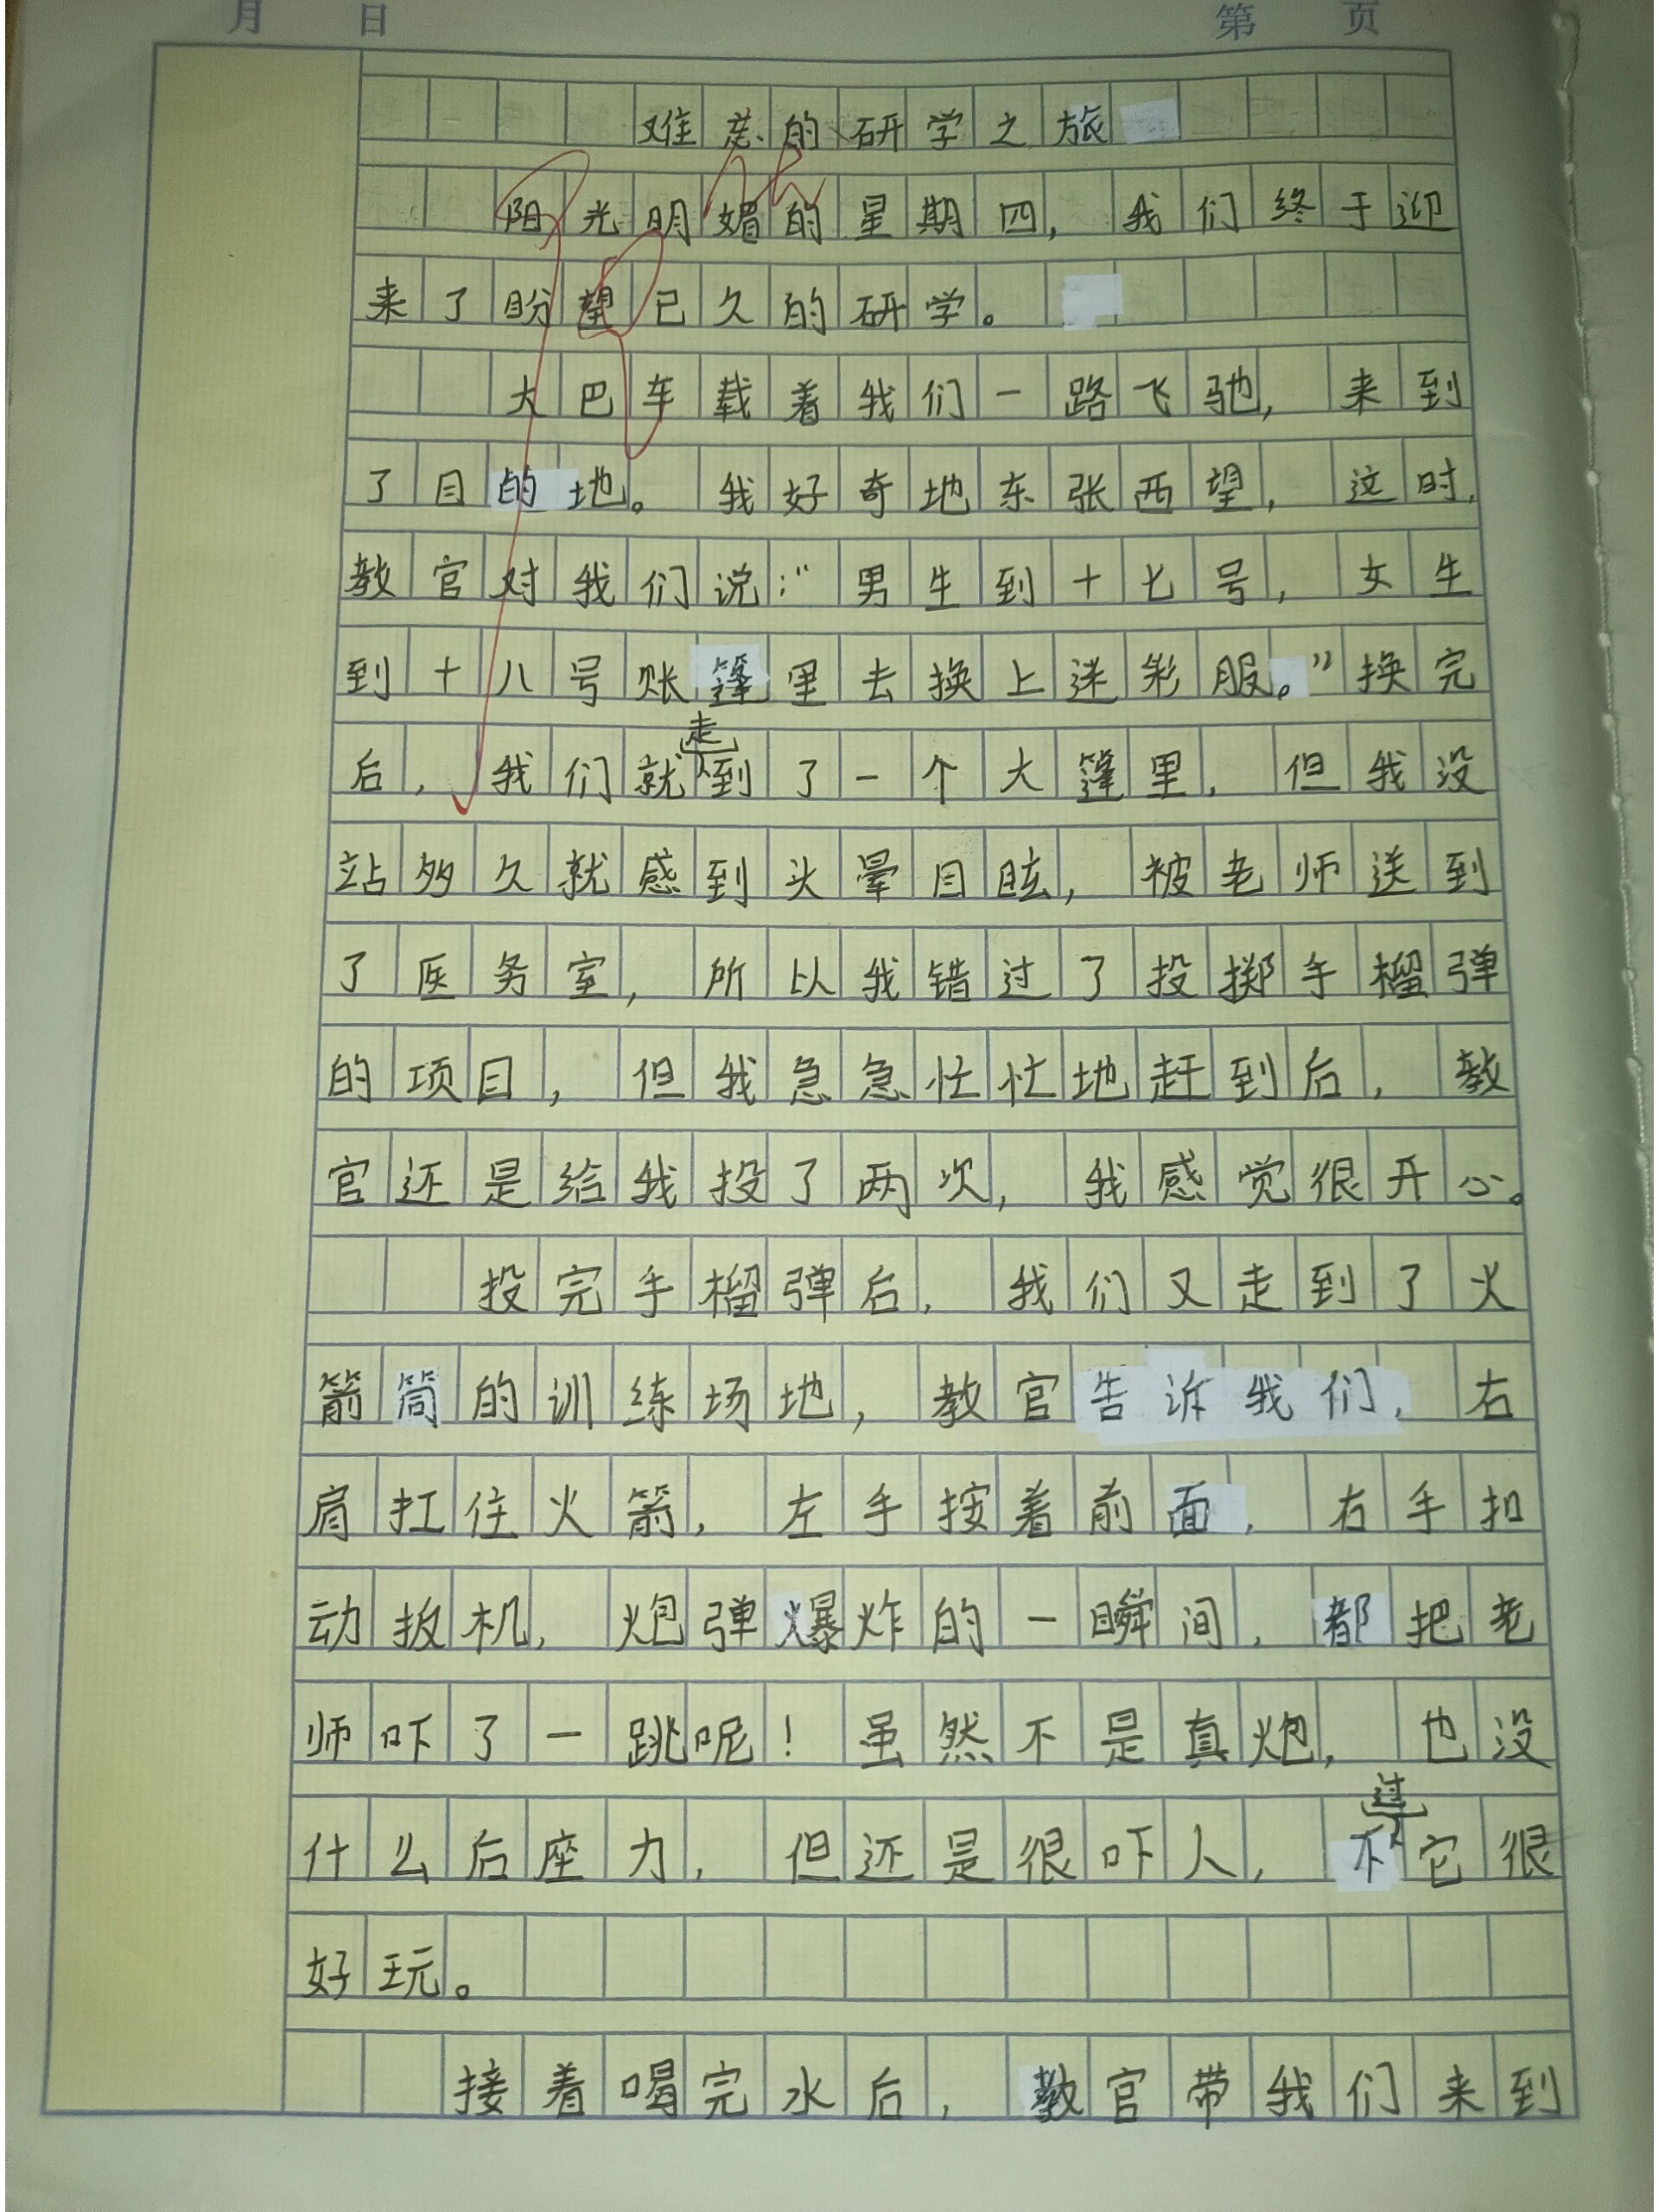 月 日 第 页
难忘的研学之旅
阳光明媚的星期四，我们终于迎
来了盼望已久的研学。
大巴车载着我们一路飞驰，来到
了目的地。我好奇地东张西望，这时，
教官对我们说：“男生到十七号，女生
到十八号账篷里去换上迷彩服。”换完
后，我们就走到了一个大篷里，但我没
站多久就感到头晕目眩，被老师送到
了医务室，所以我错过了投掷手榴弹
的项目，但我急急忙忙地赶到后，教
官还是给我投了两次，我感觉很开心。
投完手榴弹后，我们又走到了火
箭筒的训练场地，教官告诉我们，右
肩扛住火箭，左手按着前面，右手扣
动扳机，炮弹爆炸的一瞬间，都把老
师吓了一跳呢！虽然不是真炮，也没
什么后座力，但还是很吓人，不过它很
好玩。
接着喝完水后，教官带我们来到